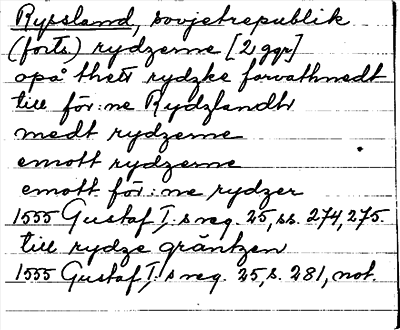 Ryssland, sovjetrepublik
(forts) rydzerne [2 ggr]
opå thett rydzke farvathnedt
till för:ne Rydzlandh
medt rydzerne
emott rydzerne
emott för:ne rydzer
1555 Gustaf I:s reg. 25, ss. 274, 275.
till rydze gräntzen
1555 Gustaf I:s reg. 25, s. 281, not.